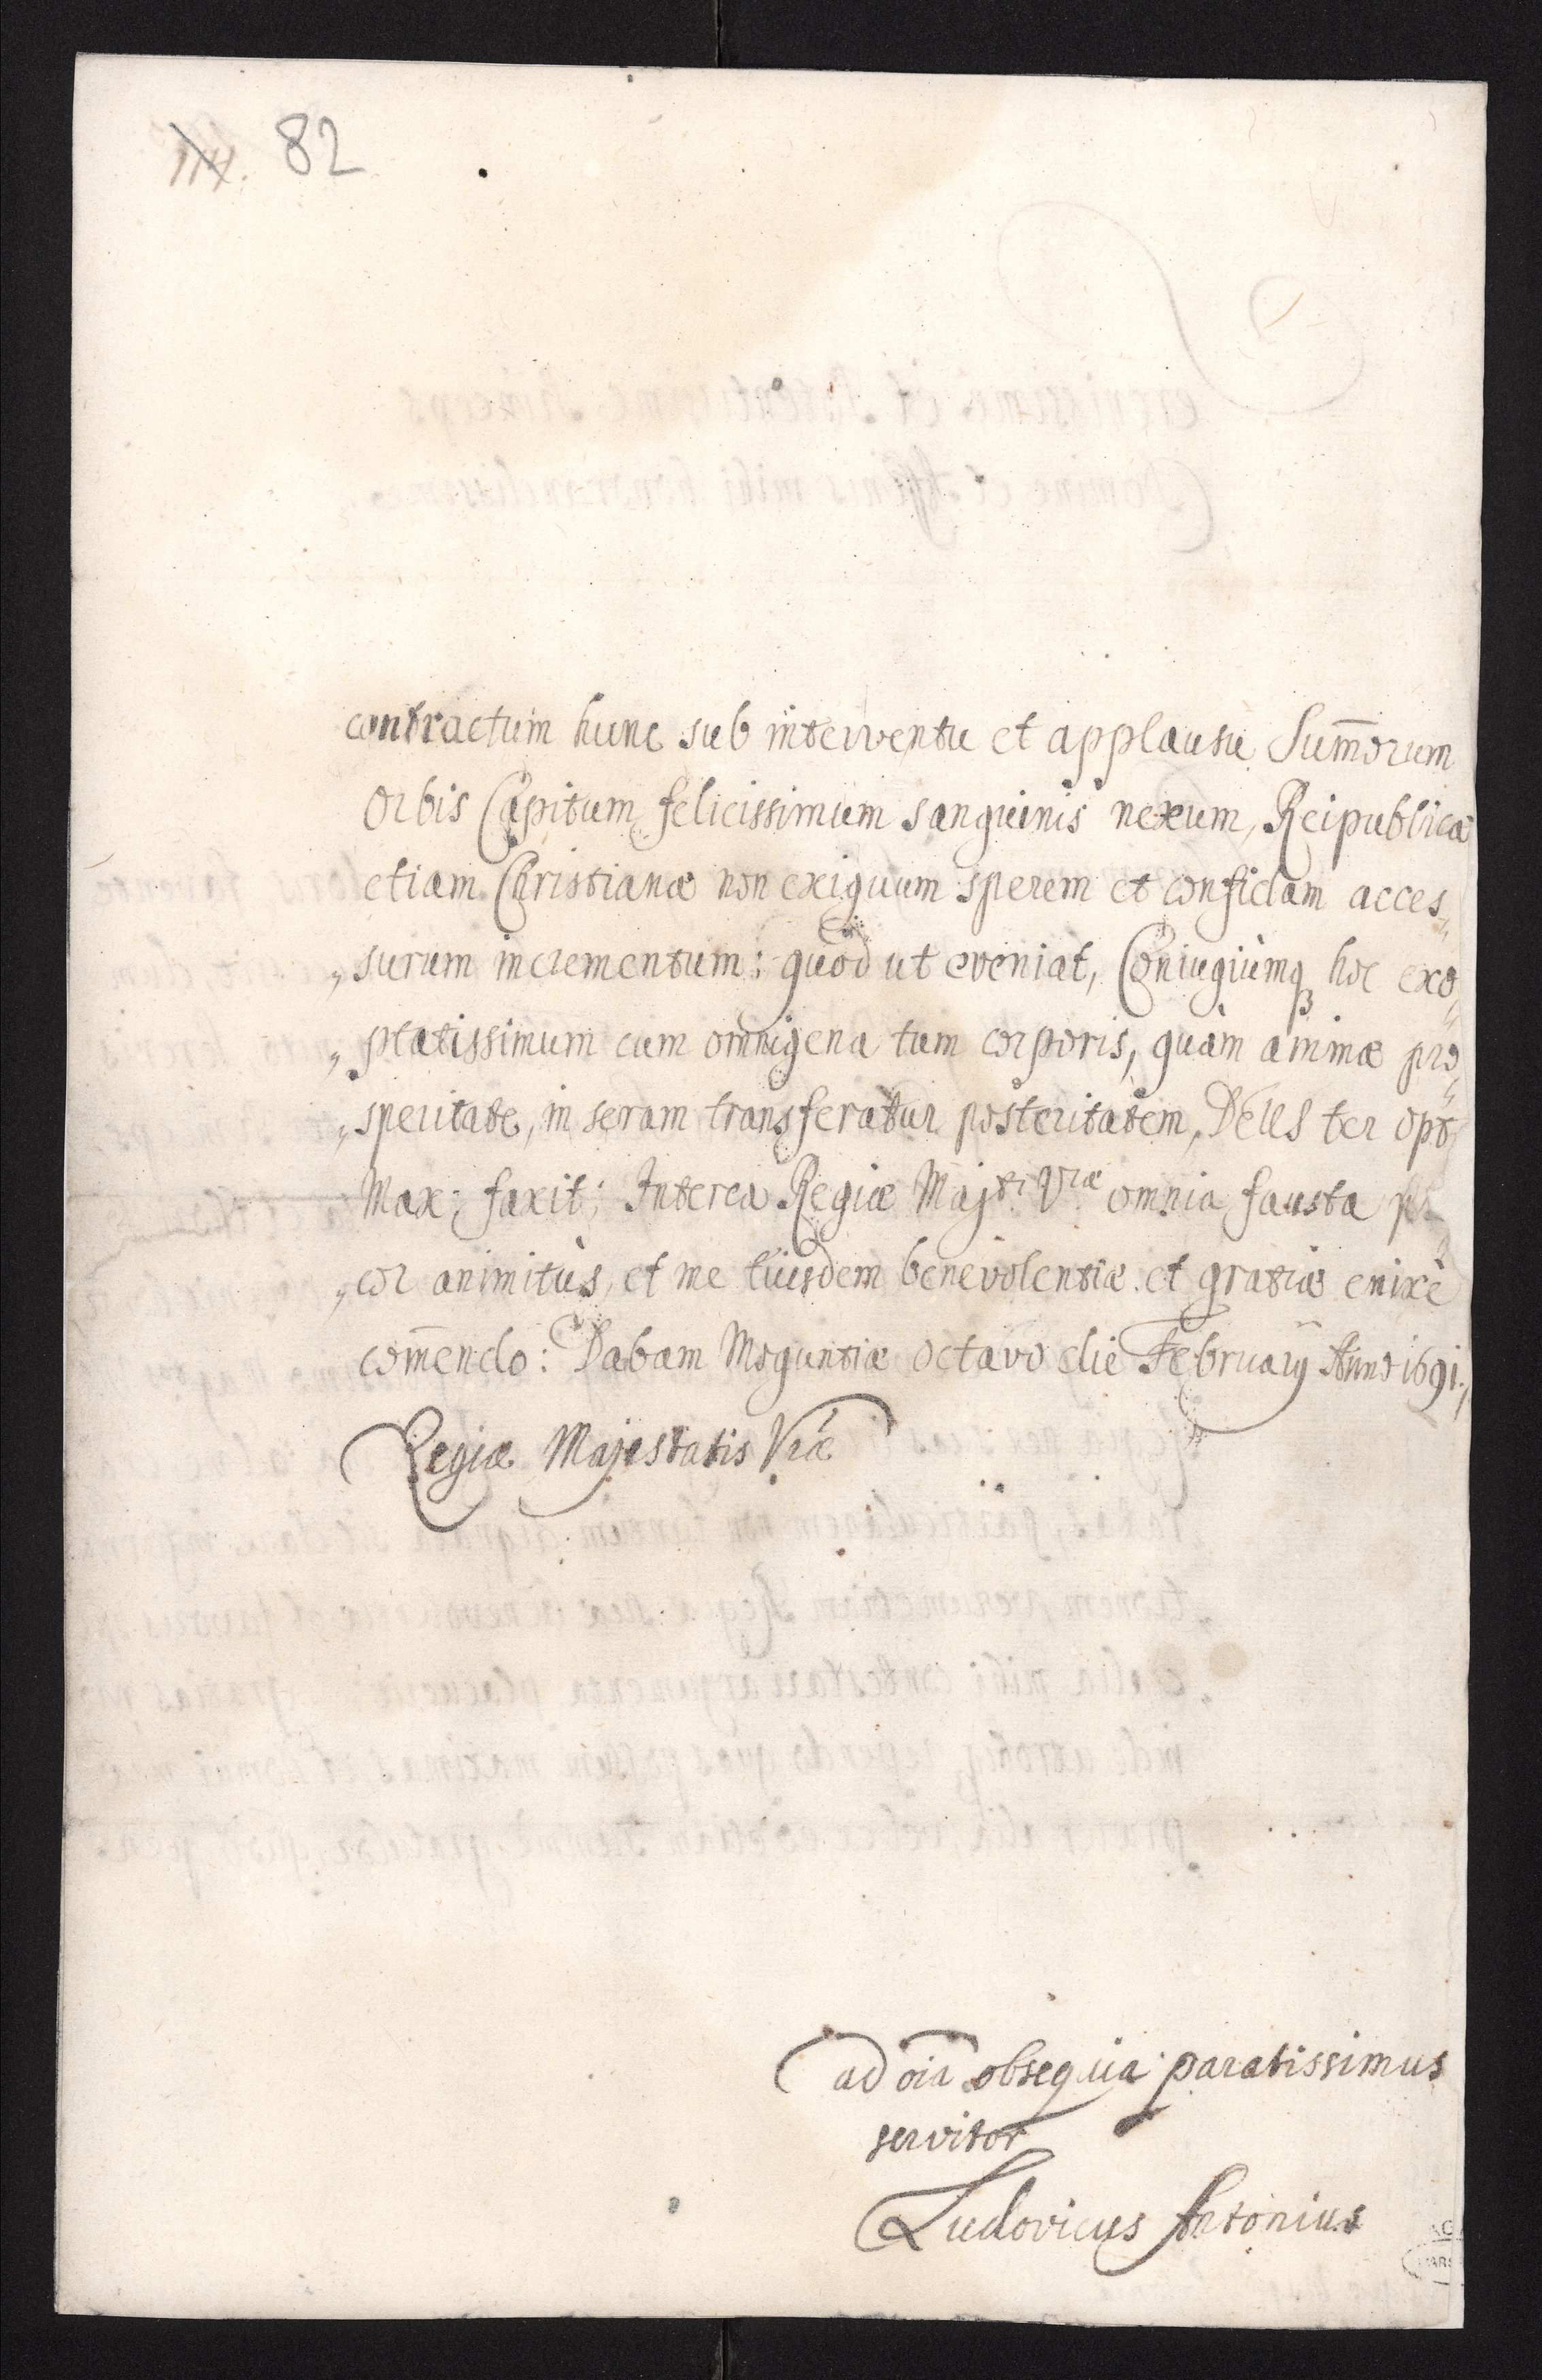 114. 82
contractum hunc sub interventu et applausu Sum̄orum
Orbis Capitum felicissimum sanguinis nexum, Reipublicæ
etiam Christianæ non exiguum sperem et confidam acces„
„surum incrementum: quod ut eveniat, Coniugiùmqꝫ hoc exo„
„ptatissimum cum omnigena tum corporis, quàm animæ pro„
„speritate, in seram transferatur posteritatem, DEUS ter opt
Max: faxit; Interea Regiæ Majtͥ Vræ omnia fausta
„cor animitùs, et me eiusdem benevolentiæ et gratiæ enixè
com̄endo: Dabam Moguntiæ octavo die Februarÿ Anno 1691.
Regiæ Majestatis Vræ
ad oīa obsequia paratissimus
servitor
Ludovicus Antonius